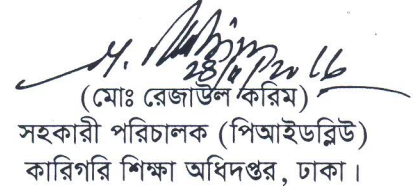 28/9/2016
(মোঃ রেজাউল করিম)
সহকারী পরিচালক (পিআইডব্লিউ)
কারিগরি শিক্ষা অধিদপ্তর, ঢাকা।